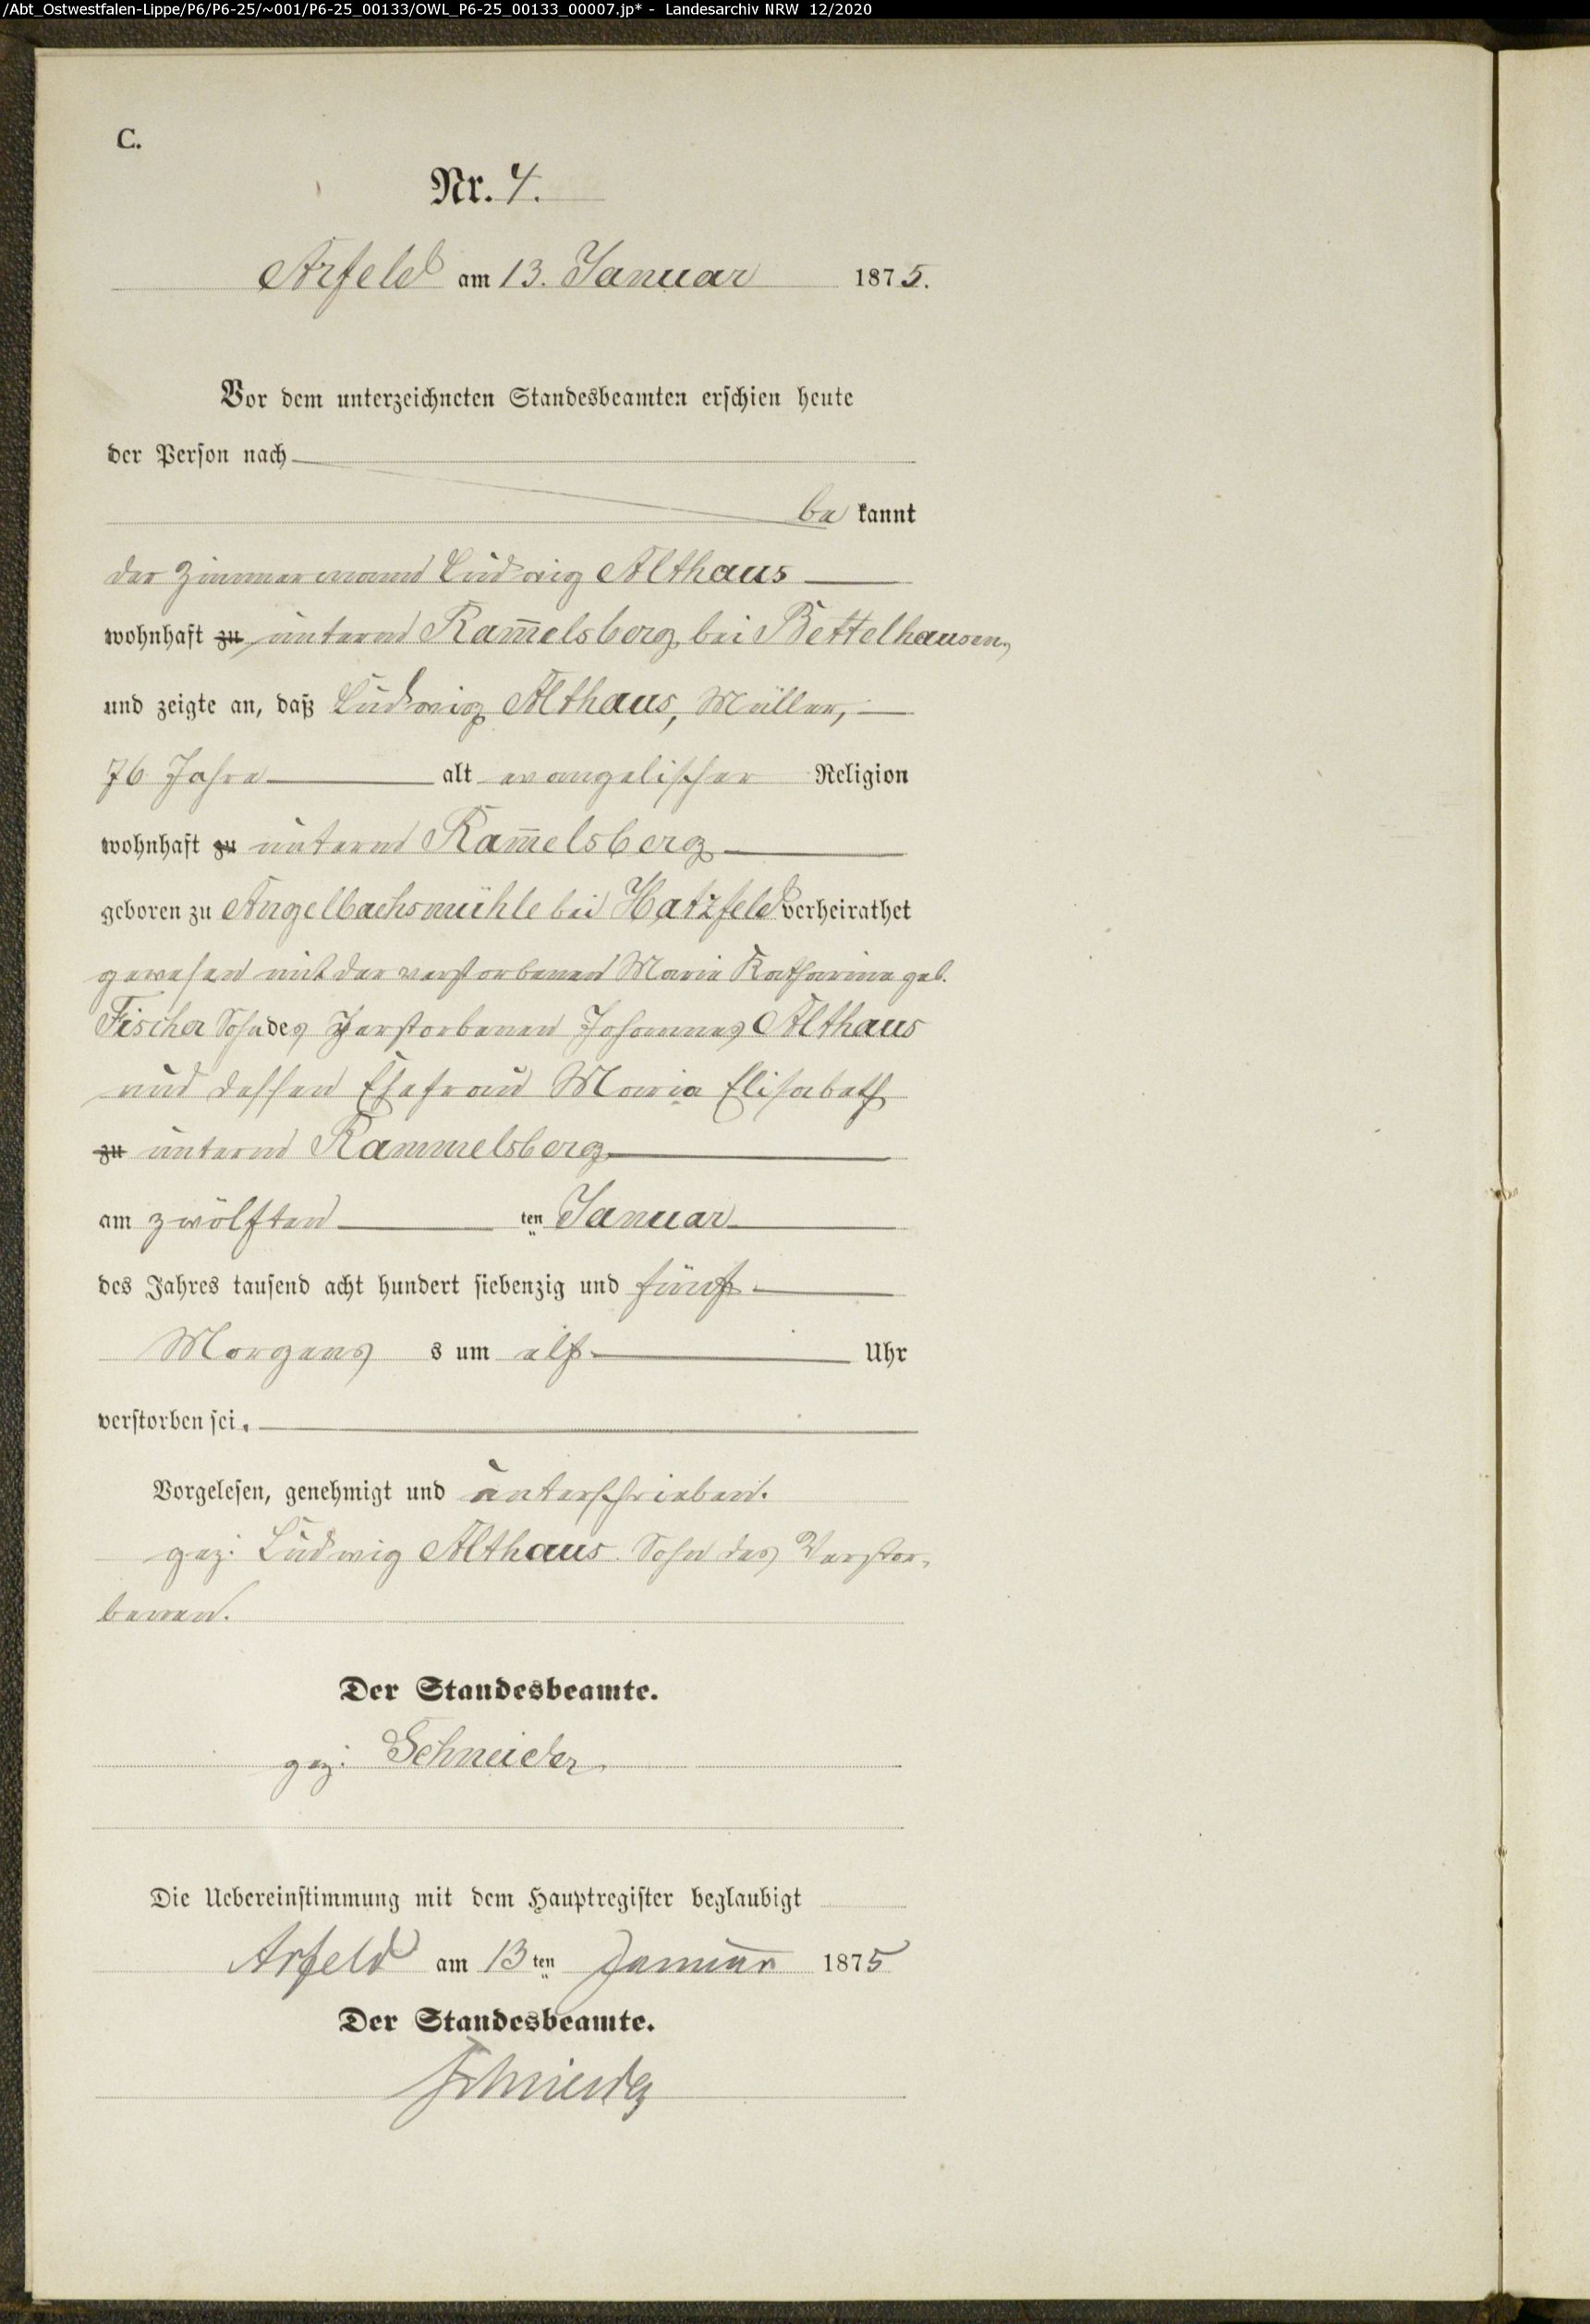 /Abt_Ostwestfalen-Lippe/P6/P6-25/~001/P6-25_00133/OWL_P6-25_00133_00007.jp* - Landesarchiv NRW 12/2020
C.
Nr. 4.
Arfeld am 13. Januar 1875.
Vor dem unterzeichneten Standesbeamten erschien heute
der Person nach
be kannt
der Zimmermann Ludwig Althaus
wohnhaft zu unterm Ram̅elsberg bei Bettelhausen,
und zeigte an, daß Ludwig Althaus, Müller,
76 Jahre alt evangelischer Religion
wohnhaft zu unterm Ram̅elsberg
geboren zu Angelbachsmühle bei Hatzfeld verheirathet
gewesen mit der verstorbenen Marie Katharine geb.
Fischer Sohn des Verstorbenen Johannes Althaus
und dessen Ehefrau Maria Elisabeth
zu unterm Rammelsberg
am zwölften ten Januar
des Jahres tausend acht hundert siebenzig und fünf
Morgens s um elf Uhr
verstorben sei.
Vorgelesen, genehmigt und unterschrieben.
gez. Ludwig Althaus. Sohn des Verstor-
benen.
Der Standesbeamte.
gez. Schneider
Die Uebereinstimmung mit dem Hauptregister beglaubigt
Arfeld am 13 ten Januar 1875
Der Standesbeamte.
Schneider